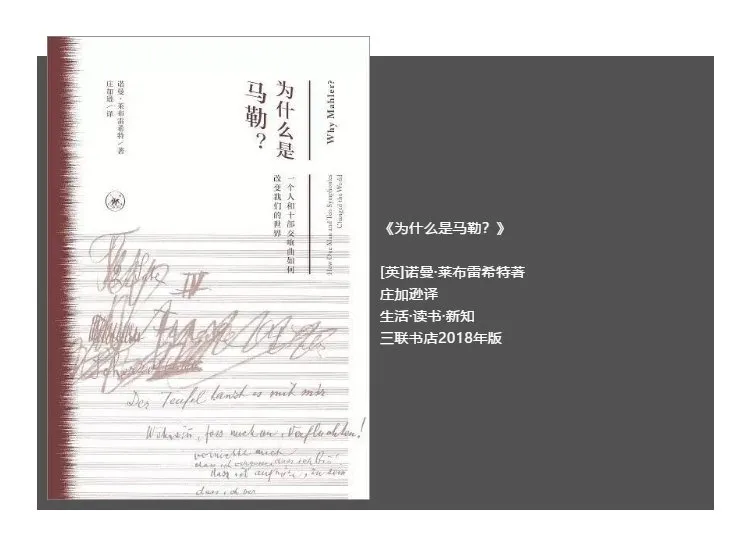 Why Mahler?
为什么是
马勒？
How One Man and Ten Symphonies
Changed the World
一个人和十部交响曲如何
改变我们的世界
诺曼·莱布雷希特／著
庄加逊／译
IV
Der Teufel tanzt es mit mir
Wahnsinn, fass mich an, Verfluchten!
vernichte mich
dass ich vergesse, dass ich bin!
dass ich aufhöre, zu sein
dass ich ver
《为什么是马勒？》
[英]诺曼·莱布雷希特著
庄加逊译
生活·读书·新知
三联书店2018年版